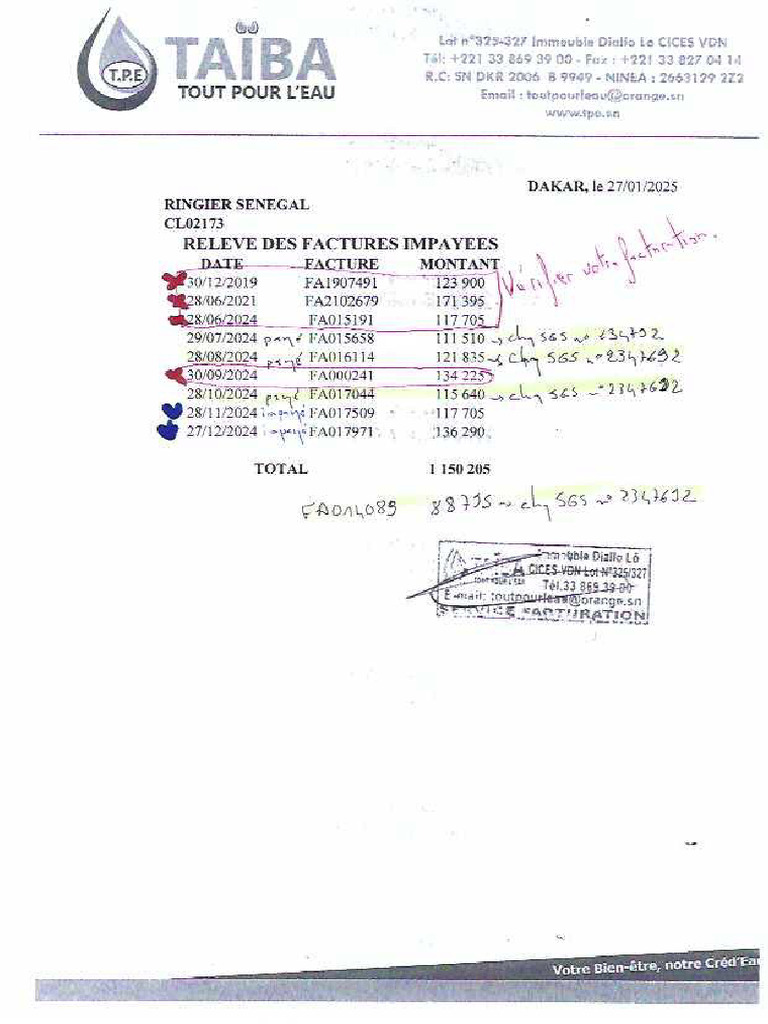 T.P.E
TAÏBA
TOUT POUR L'EAU
Lot n°325-327 Immeuble Diallo Lo CICES VDN
Tél: +221 33 869 39 00 - Fax : +221 33 827 04 14
R.C: SN DKR 2006 B 9949 - NINEA : 2663129 2Z2
Email : toutpourleau@orange.sn
www.tpe.sn
DAKAR, le 27/01/2025
RINGIER SENEGAL
CL02173
RELEVE DES FACTURES IMPAYEES
Vérifier votre facturation.
DATE FACTURE MONTANT
30/12/2019 FA1907491 123 900
28/06/2021 FA2102679 171 395
28/06/2024 FA015191 117 705
29/07/2024 payé FA015658 111 510 → chq SGS n° 2347692
28/08/2024 payé FA016114 121 835 → chq SGS n° 2347692
30/09/2024 FA000241 134 225
28/10/2024 payé FA017044 115 640 → chq SGS n° 2347692
28/11/2024 impayé FA017509 117 705
27/12/2024 impayé FA017971 136 290
TOTAL 1 150 205
FA014089 88715 → chq SGS n° 2347692
Immeuble Diallo Lô
CICES-VDN Lot N°325/327
TOUT POUR L'EAU Tél.33 869 39 00
E-mail: toutpourleau@orange.sn
SERVICE FACTURATION
Votre Bien-être, notre Créd'Eau